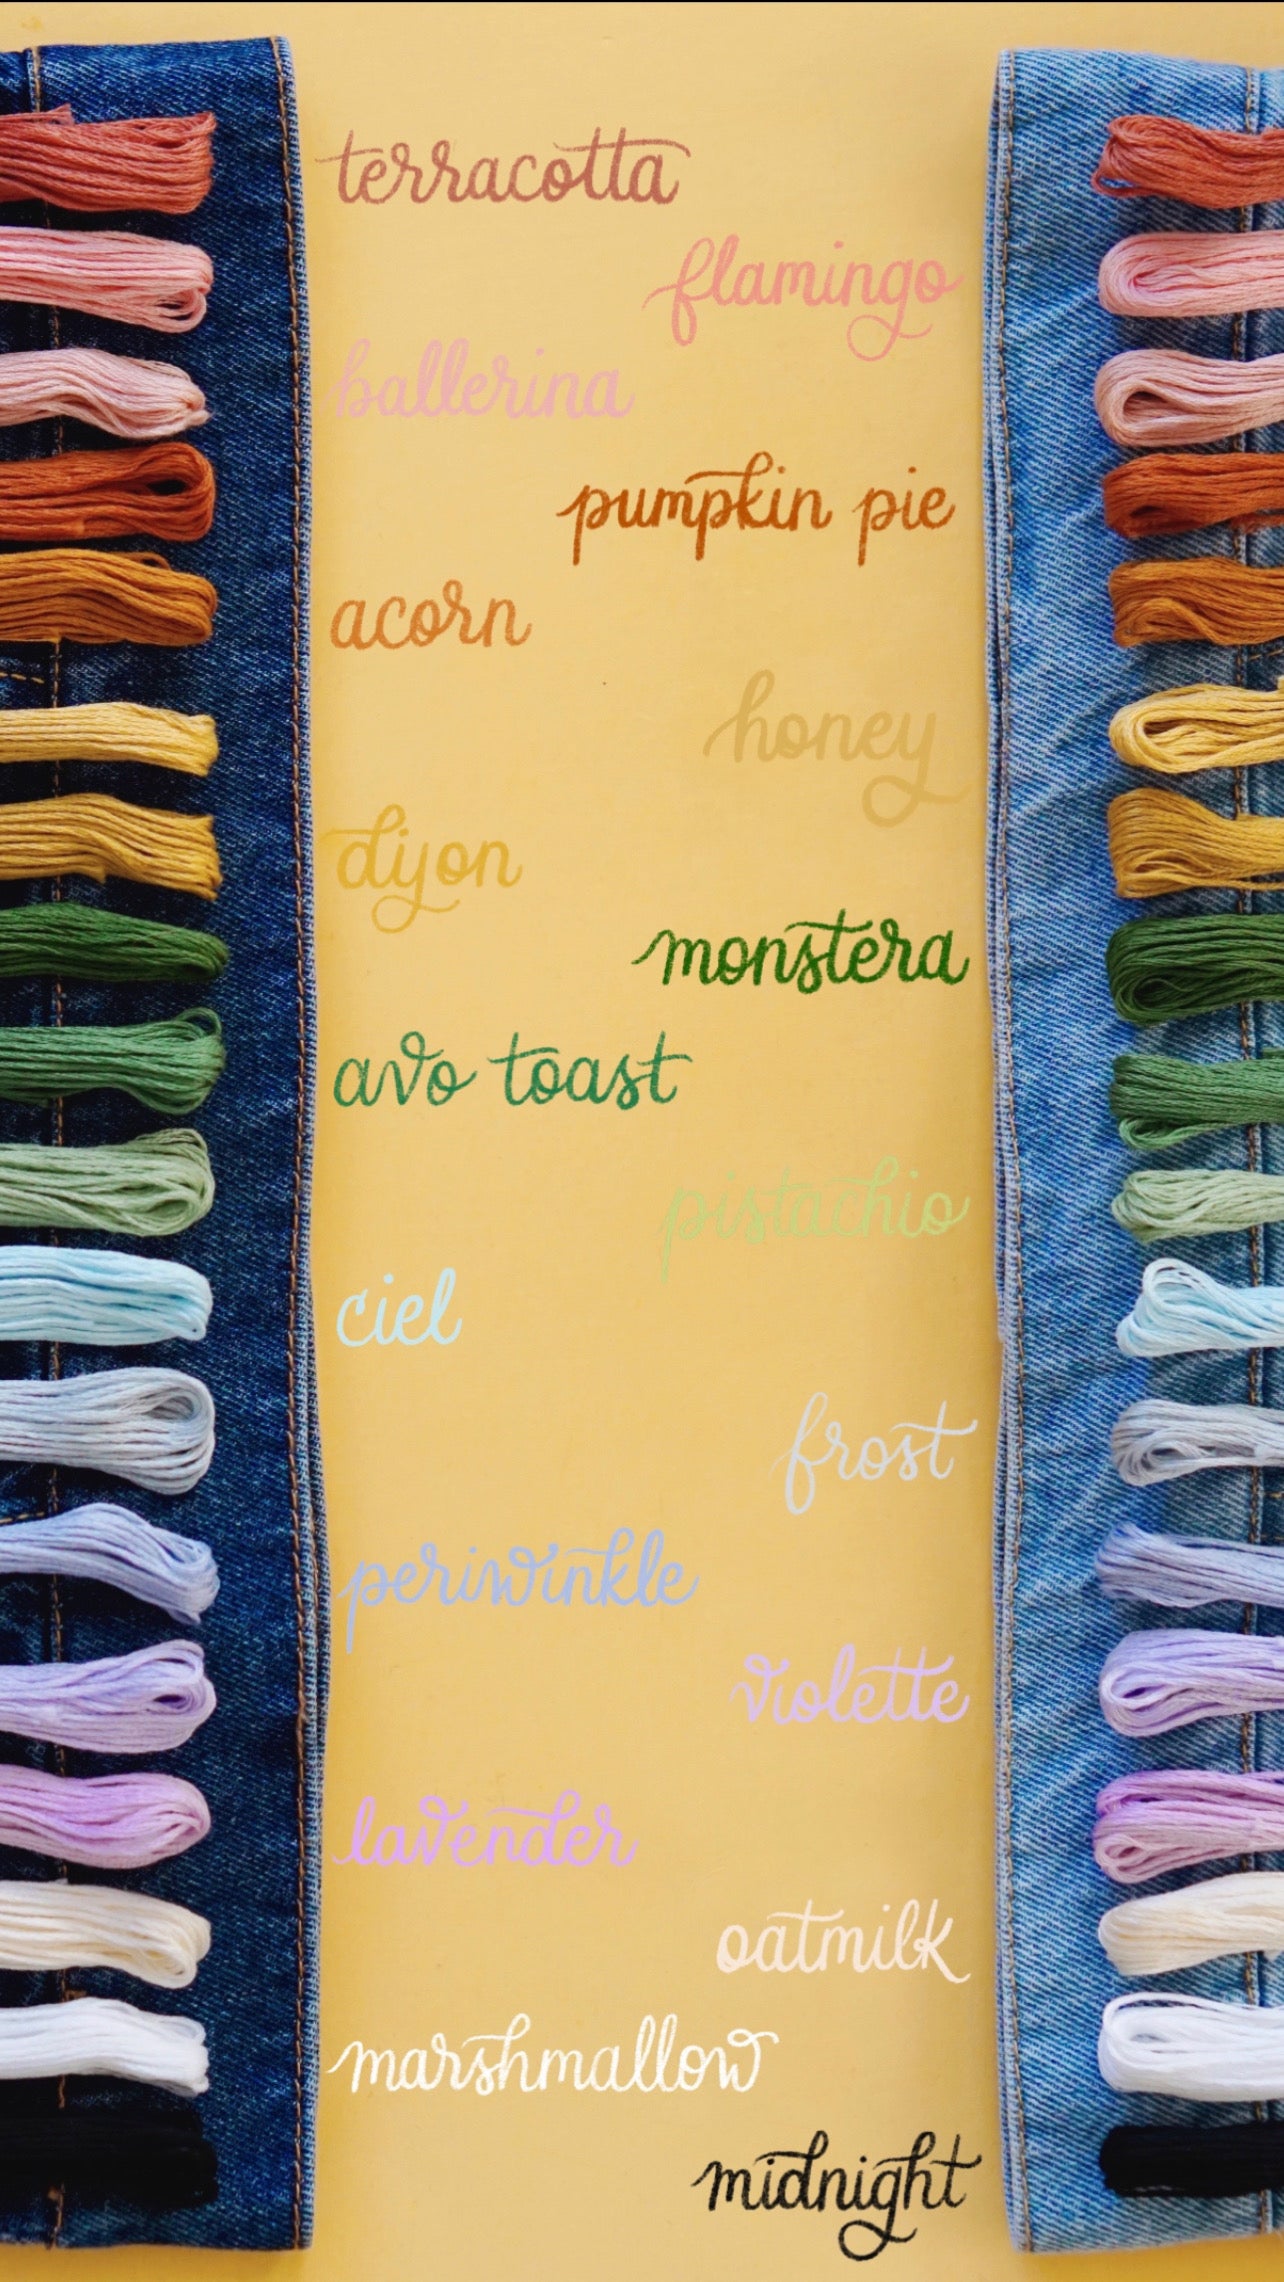 terracotta
flamingo
ballerina
pumpkin pie
acorn
honey
dijon
monstera
avo toast
pistachio
ciel
frost
periwinkle
violette
lavender
oatmilk
marshmallow
midnight